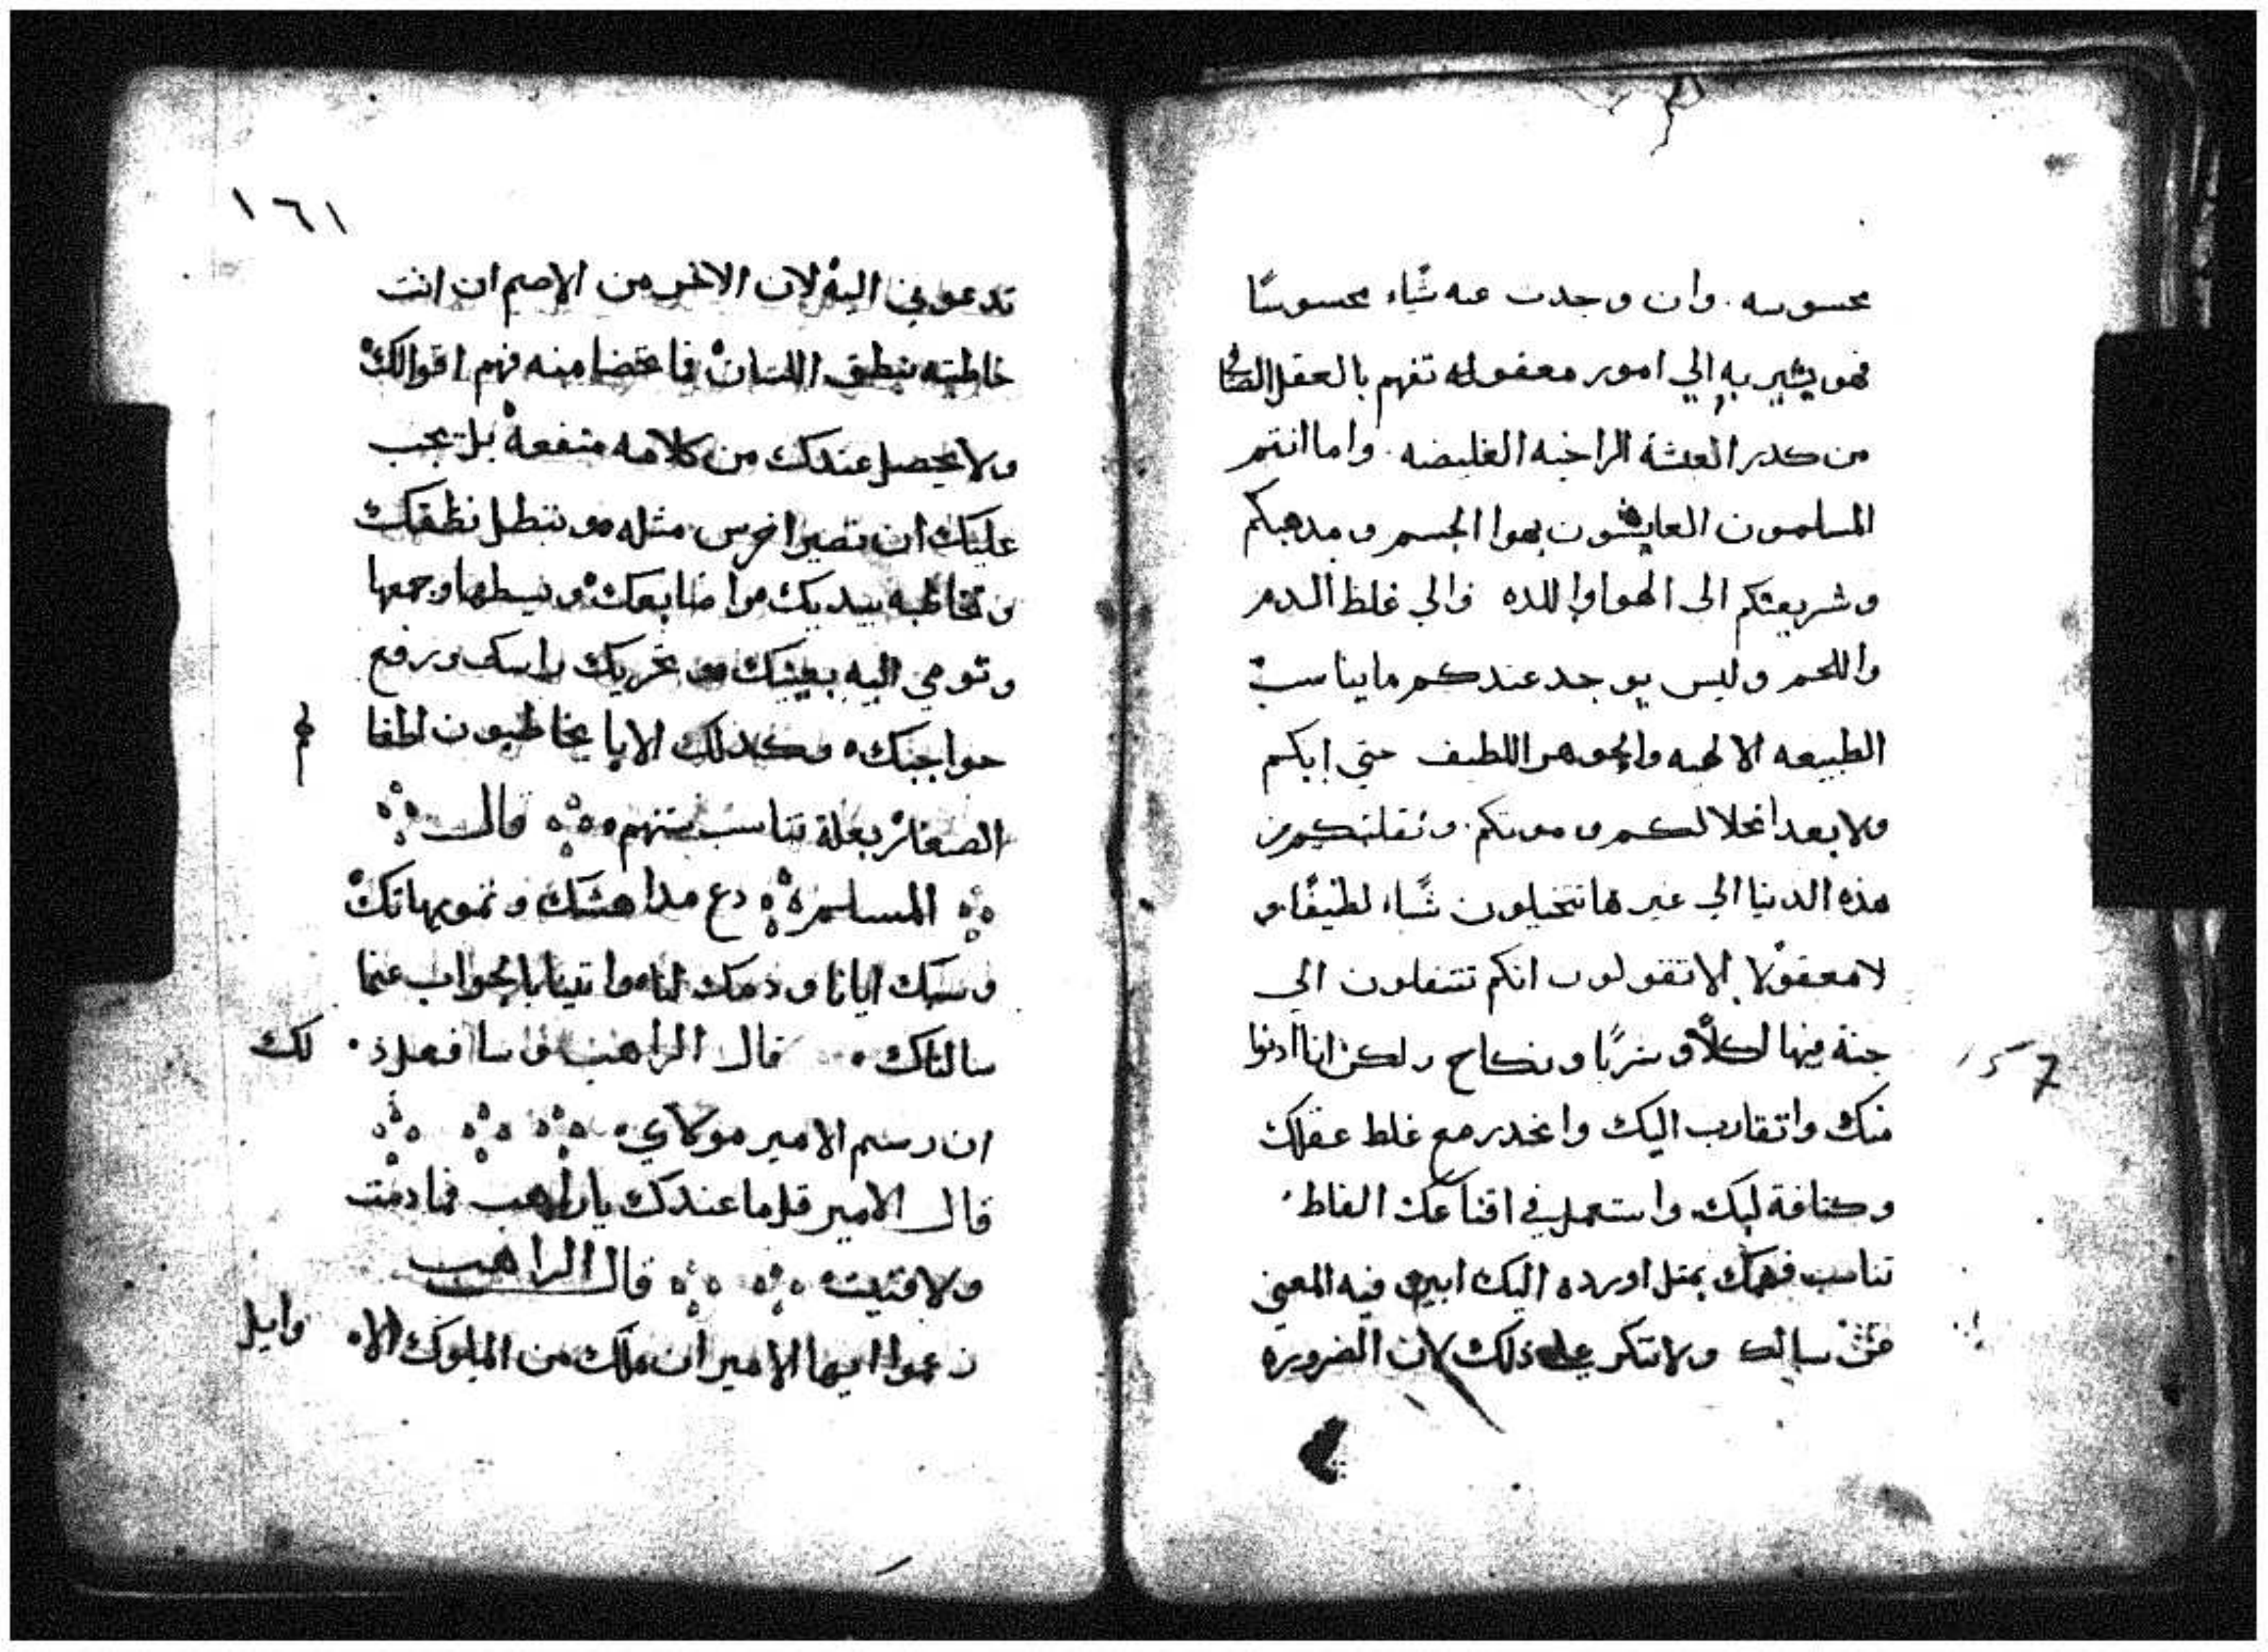 محسوسه. وان وجدت عنه شياء محسوسًا
فهو يشير به الي امور معقوله تفهم بالعقل الصافي
من كدر العيشة الراخيه الغليضه. واما انتم
المسلمون العايشون بهوا الجسم ومدهبكم
وشريعتكم الى الهوا واللده والي غلظ الدم
واللحم وليس يوجد عندكم ما يناسب
الطبيعه الالهيه والجوهر اللطيف حتي انكم
ولا بعد انحلالكم وموتكم. ونقلتكم من
هذه الدنيا الي غيرها تتخيلون شياء لطيفًا و
لا معقولا الا تقولون انكم تنتقلون الي
جنة فيها اكلاً وشربًا ونكاح ولكن انا ادنوا
منك واتقارب اليك وانحدر مع غلط عقلك
وكتافة لبك. واستعمل في اقناعك الفاظ
تناسب فهمك بمتل اورده اليك ابين فيه المعني
سالك ولا تنكر علي ذلك لان الضروره
١٥٦
١٦١
تدعوني اليه لان الاخرس الاصم ان انت
خاطبته بنطق اللسان فهم اقوالك
ولا يحصل عندك من كلامه منفعة بل يجب
عليك ان تصير اخرس مثله وتبطل نطقك
وتخاطبه بيديك واصابعك وبسطها وجمعها
وتومي اليه بعينك وتحريك راسك ورفع
حواجبك وكدلك الابا يخاطبون اطفالهم
الصغار بعلة تناسب سنهم قال
المسلم دع مداهنتك وتمويهاتك
وسبك ايانا ودمك لنا واتينا بالجواب عما
سالناك. قال الراهب وسافعل ذلك
ان رسم الامير مولاي.
قال الامير قل ما عندك يا راهب فما دمت
ولا فتيت قال الراهب
زعموا ايها الامير ان ملك من الملوك الاوايل